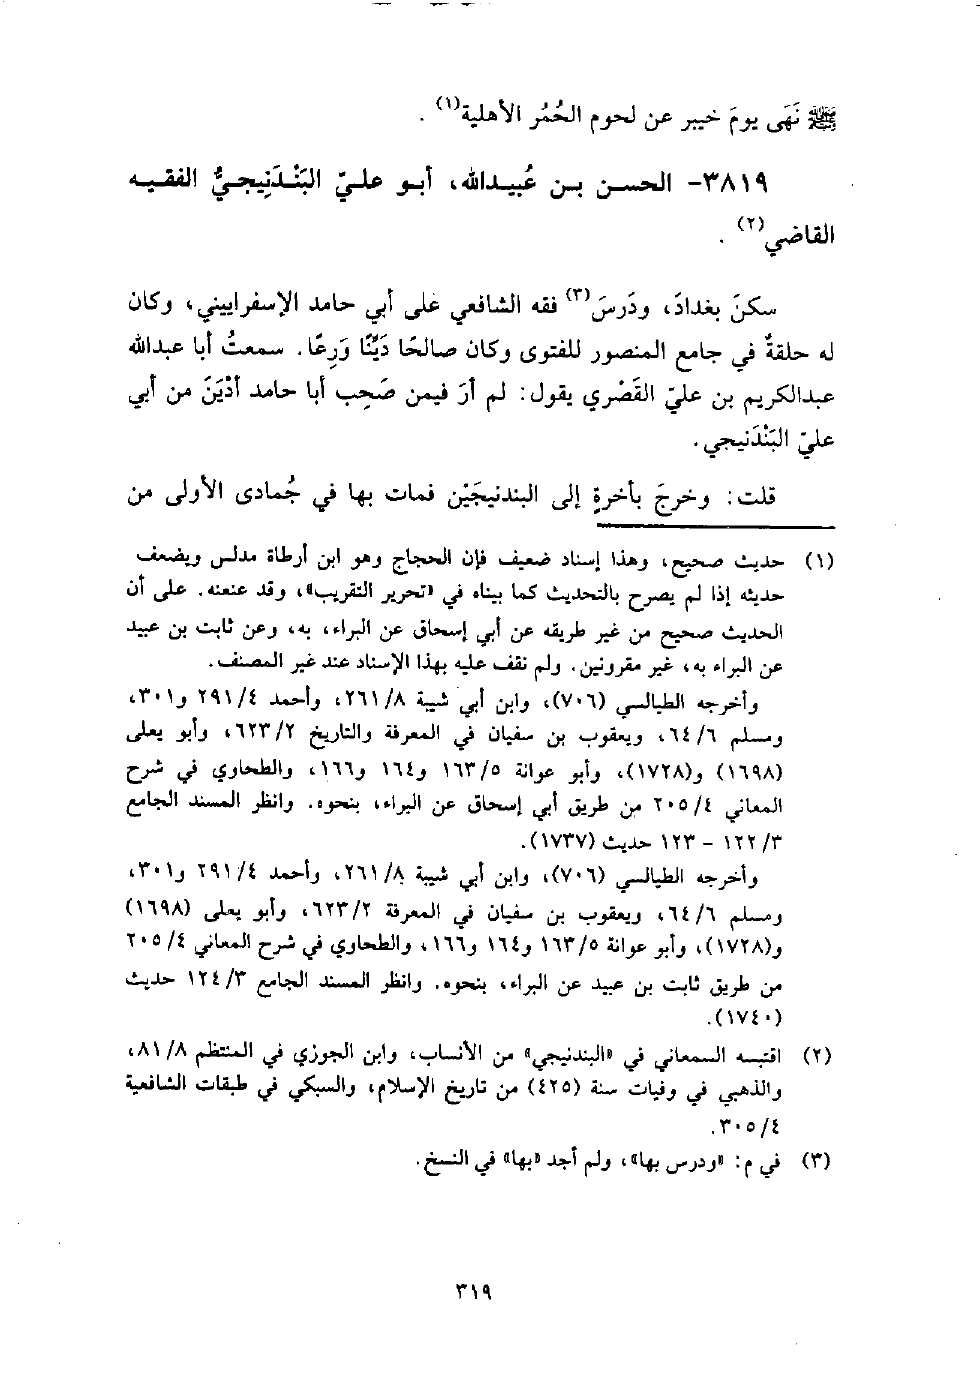 ﷺ نَهَى يومَ خيبر عن لحوم الحُمُر الأهلية(١) .
٣٨١٩- الحسن بن عُبيدالله، أبو عليّ البَنْدَنِيجيُّ الفقيه
القاضي(٢) .
سكنَ بغدادَ، ودَرسَ(٣) فقه الشافعي على أبي حامد الإسفراييني، وكان
له حلقةٌ في جامع المنصور للفتوى وكان صالحًا دَيِّنًا وَرِعًا. سمعتُ أبا عبدالله
عبدالكريم بن عليّ القَصْري يقول: لم أرَ فيمن صَحِب أبا حامد أدْيَنَ من أبي
عليّ البَنْدَنيجي.
قلت: وخرجَ بأخرةٍ إلى البندنيجَيْن فمات بها في جُمادى الأولى من
(١) حديث صحيح، وهذا إسناد ضعيف فإن الحجاج وهو ابن أرطاة مدلس ويضعف
حديثه إذا لم يصرح بالتحديث كما بيناه في «تحرير التقريب»، وقد عنعنه. على أن
الحديث صحيح من غير طريقه عن أبي إسحاق عن البراء، به، وعن ثابت بن عبيد
عن البراء به، غير مقرونين. ولم نقف عليه بهذا الإسناد عند غير المصنف.
وأخرجه الطيالسي (٧٠٦)، وابن أبي شيبة ٨/ ٢٦١، وأحمد ٤/ ٢٩١ و٣٠١،
ومسلم ٦/ ٦٤، ويعقوب بن سفيان في المعرفة والتاريخ ٢/ ٦٢٣، وأبو يعلى
(١٦٩٨) و(١٧٢٨)، وأبو عوانة ٥/ ١٦٣ و١٦٤ و١٦٦، والطحاوي في شرح
المعاني ٤/ ٢٠٥ من طريق أبي إسحاق عن البراء، بنحوه. وانظر المسند الجامع
٣/ ١٢٢ - ١٢٣ حديث (١٧٣٧).
وأخرجه الطيالسي (٧٠٦)، وابن أبي شيبة ٨/ ٢٦١، وأحمد ٤/ ٢٩١ و٣٠١،
ومسلم ٦/ ٦٤، ويعقوب بن سفيان في المعرفة ٢/ ٦٢٣، وأبو يعلى (١٦٩٨)
و(١٧٢٨)، وأبو عوانة ٥/ ١٦٣ و١٦٤ و١٦٦، والطحاوي في شرح المعاني ٤/ ٢٠٥
من طريق ثابت بن عبيد عن البراء، بنحوه. وانظر المسند الجامع ٣/ ١٢٤ حديث
(١٧٤٠).
(٢) اقتبسه السمعاني في «البندنيجي» من الأنساب، وابن الجوزي في المنتظم ٨/ ٨١،
والذهبي في وفيات سنة (٤٢٥) من تاريخ الإسلام، والسبكي في طبقات الشافعية
٤/ ٣٠٥.
(٣) في م: «ودرس بها»، ولم أجد «بها» في النسخ.
٣١٩